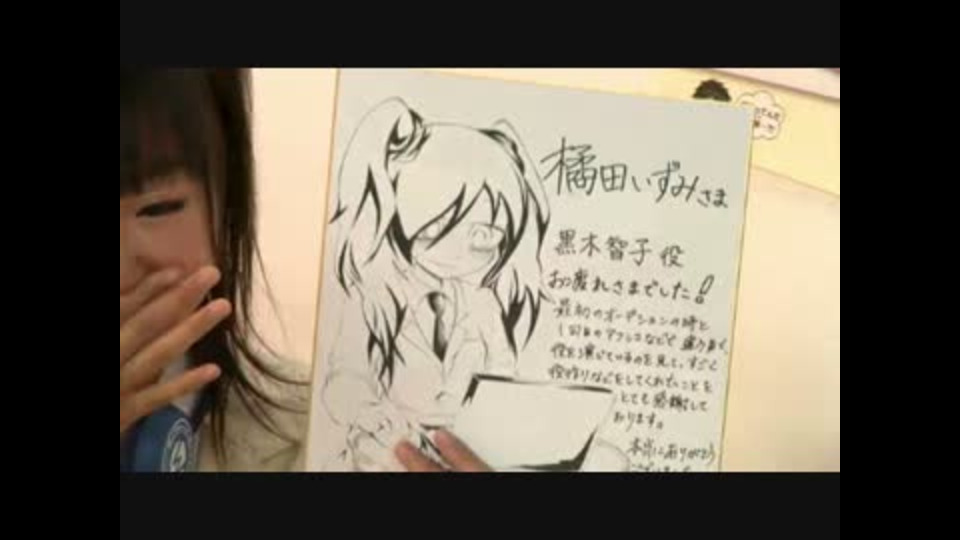 橘田いずみさま
黒木智子役
お疲れさまでした!
最初のオーディションの時と
1回目のアフレコなどで
役を演じているのを見て、すごく
役作りなどをしてくれたことを
とても感謝して
おります。
本当にありがとう